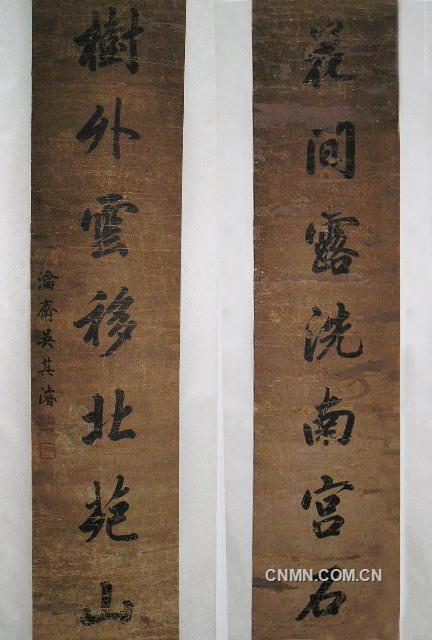 花間露洗南宮石
樹外雲移北苑山
瀹齋吳其濬
CNMN.COM.CN